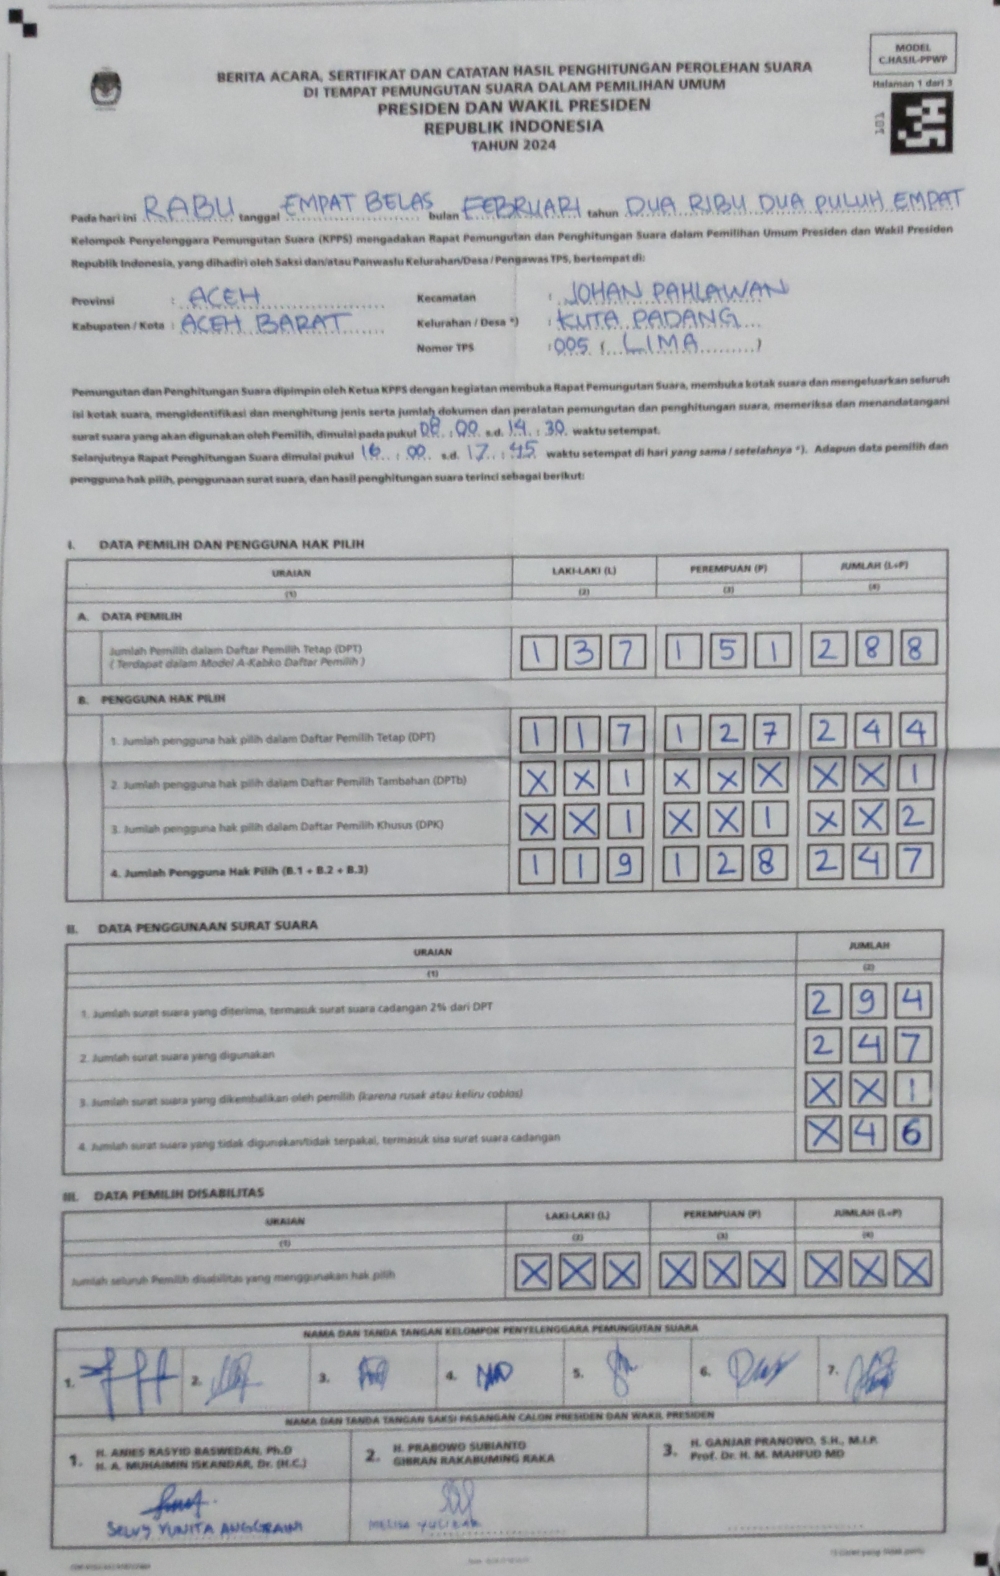 MODEL
C.HASIL-PPWP
Halaman 1 dari 3
101
BERITA ACARA, SERTIFIKAT DAN CATATAN HASIL PENGHITUNGAN PEROLEHAN SUARA
DI TEMPAT PEMUNGUTAN SUARA DALAM PEMILIHAN UMUM
PRESIDEN DAN WAKIL PRESIDEN
REPUBLIK INDONESIA
TAHUN 2024
Pada hari ini RABU tanggal EMPAT BELAS bulan FEBRUARI tahun DUA RIBU DUA PULUH EMPAT
Kelompok Penyelenggara Pemungutan Suara (KPPS) mengadakan Rapat Pemungutan dan Penghitungan Suara dalam Pemilihan Umum Presiden dan Wakil Presiden
Republik Indonesia, yang dihadiri oleh Saksi dan/atau Panwaslu Kelurahan/Desa / Pengawas TPS, bertempat di:
Provinsi : ACEH Kecamatan : JOHAN PAHLAWAN
Kabupaten / Kota : ACEH BARAT Kelurahan / Desa *) : KUTA PADANG
Nomor TPS : 005 ( LIMA )
Pemungutan dan Penghitungan Suara dipimpin oleh Ketua KPPS dengan kegiatan membuka Rapat Pemungutan Suara, membuka kotak suara dan mengeluarkan seluruh
isi kotak suara, mengidentifikasi dan menghitung jenis serta jumlah dokumen dan peralatan pemungutan dan penghitungan suara, memeriksa dan menandatangani
surat suara yang akan digunakan oleh Pemilih, dimulai pada pukul 08 : 00 s.d. 14 : 30 waktu setempat.
Selanjutnya Rapat Penghitungan Suara dimulai pukul 16 : 00 s.d. 17 : 45 waktu setempat di hari yang sama / setelahnya *). Adapun data pemilih dan
pengguna hak pilih, penggunaan surat suara, dan hasil penghitungan suara terinci sebagai berikut:
I. DATA PEMILIH DAN PENGGUNA HAK PILIH
URAIAN LAKI-LAKI (L) PEREMPUAN (P) JUMLAH (L+P)
(1) (2) (3) (4)
A. DATA PEMILIH
Jumlah Pemilih dalam Daftar Pemilih Tetap (DPT) 1 3 7 1 5 1 2 8 8
( Terdapat dalam Model A-Kabko Daftar Pemilih )
B. PENGGUNA HAK PILIH
1. Jumlah pengguna hak pilih dalam Daftar Pemilih Tetap (DPT) 1 1 7 1 2 7 2 4 4
2. Jumlah pengguna hak pilih dalam Daftar Pemilih Tambahan (DPTb) X X 1 X X X X X 1
3. Jumlah pengguna hak pilih dalam Daftar Pemilih Khusus (DPK) X X 1 X X 1 X X 2
4. Jumlah Pengguna Hak Pilih (B.1 + B.2 + B.3) 1 1 9 1 2 8 2 4 7
II. DATA PENGGUNAAN SURAT SUARA
URAIAN JUMLAH
(1) (2)
1. Jumlah surat suara yang diterima, termasuk surat suara cadangan 2% dari DPT 2 9 4
2. Jumlah surat suara yang digunakan 2 4 7
3. Jumlah surat suara yang dikembalikan oleh pemilih (karena rusak atau keliru coblos) X X 1
4. Jumlah surat suara yang tidak digunakan/tidak terpakai, termasuk sisa surat suara cadangan X 4 6
III. DATA PEMILIH DISABILITAS
URAIAN LAKI-LAKI (L) PEREMPUAN (P) JUMLAH (L+P)
(1) (2) (3) (4)
Jumlah seluruh Pemilih disabilitas yang menggunakan hak pilih X X X X X X X X X
NAMA DAN TANDA TANGAN KELOMPOK PENYELENGGARA PEMUNGUTAN SUARA
1. 2. 3. 4. 5. 6. 7.
NAMA DAN TANDA TANGAN SAKSI PASANGAN CALON PRESIDEN DAN WAKIL PRESIDEN
1. H. ANIES RASYID BASWEDAN, Ph.D
H. A. MUHAIMIN ISKANDAR, Dr. (H.C.)
2. H. PRABOWO SUBIANTO
GIBRAN RAKABUMING RAKA
3. H. GANJAR PRANOWO, S.H., M.I.P.
Prof. Dr. H. M. MAHFUD MD
SELVY YUNITA ANGGRAINI